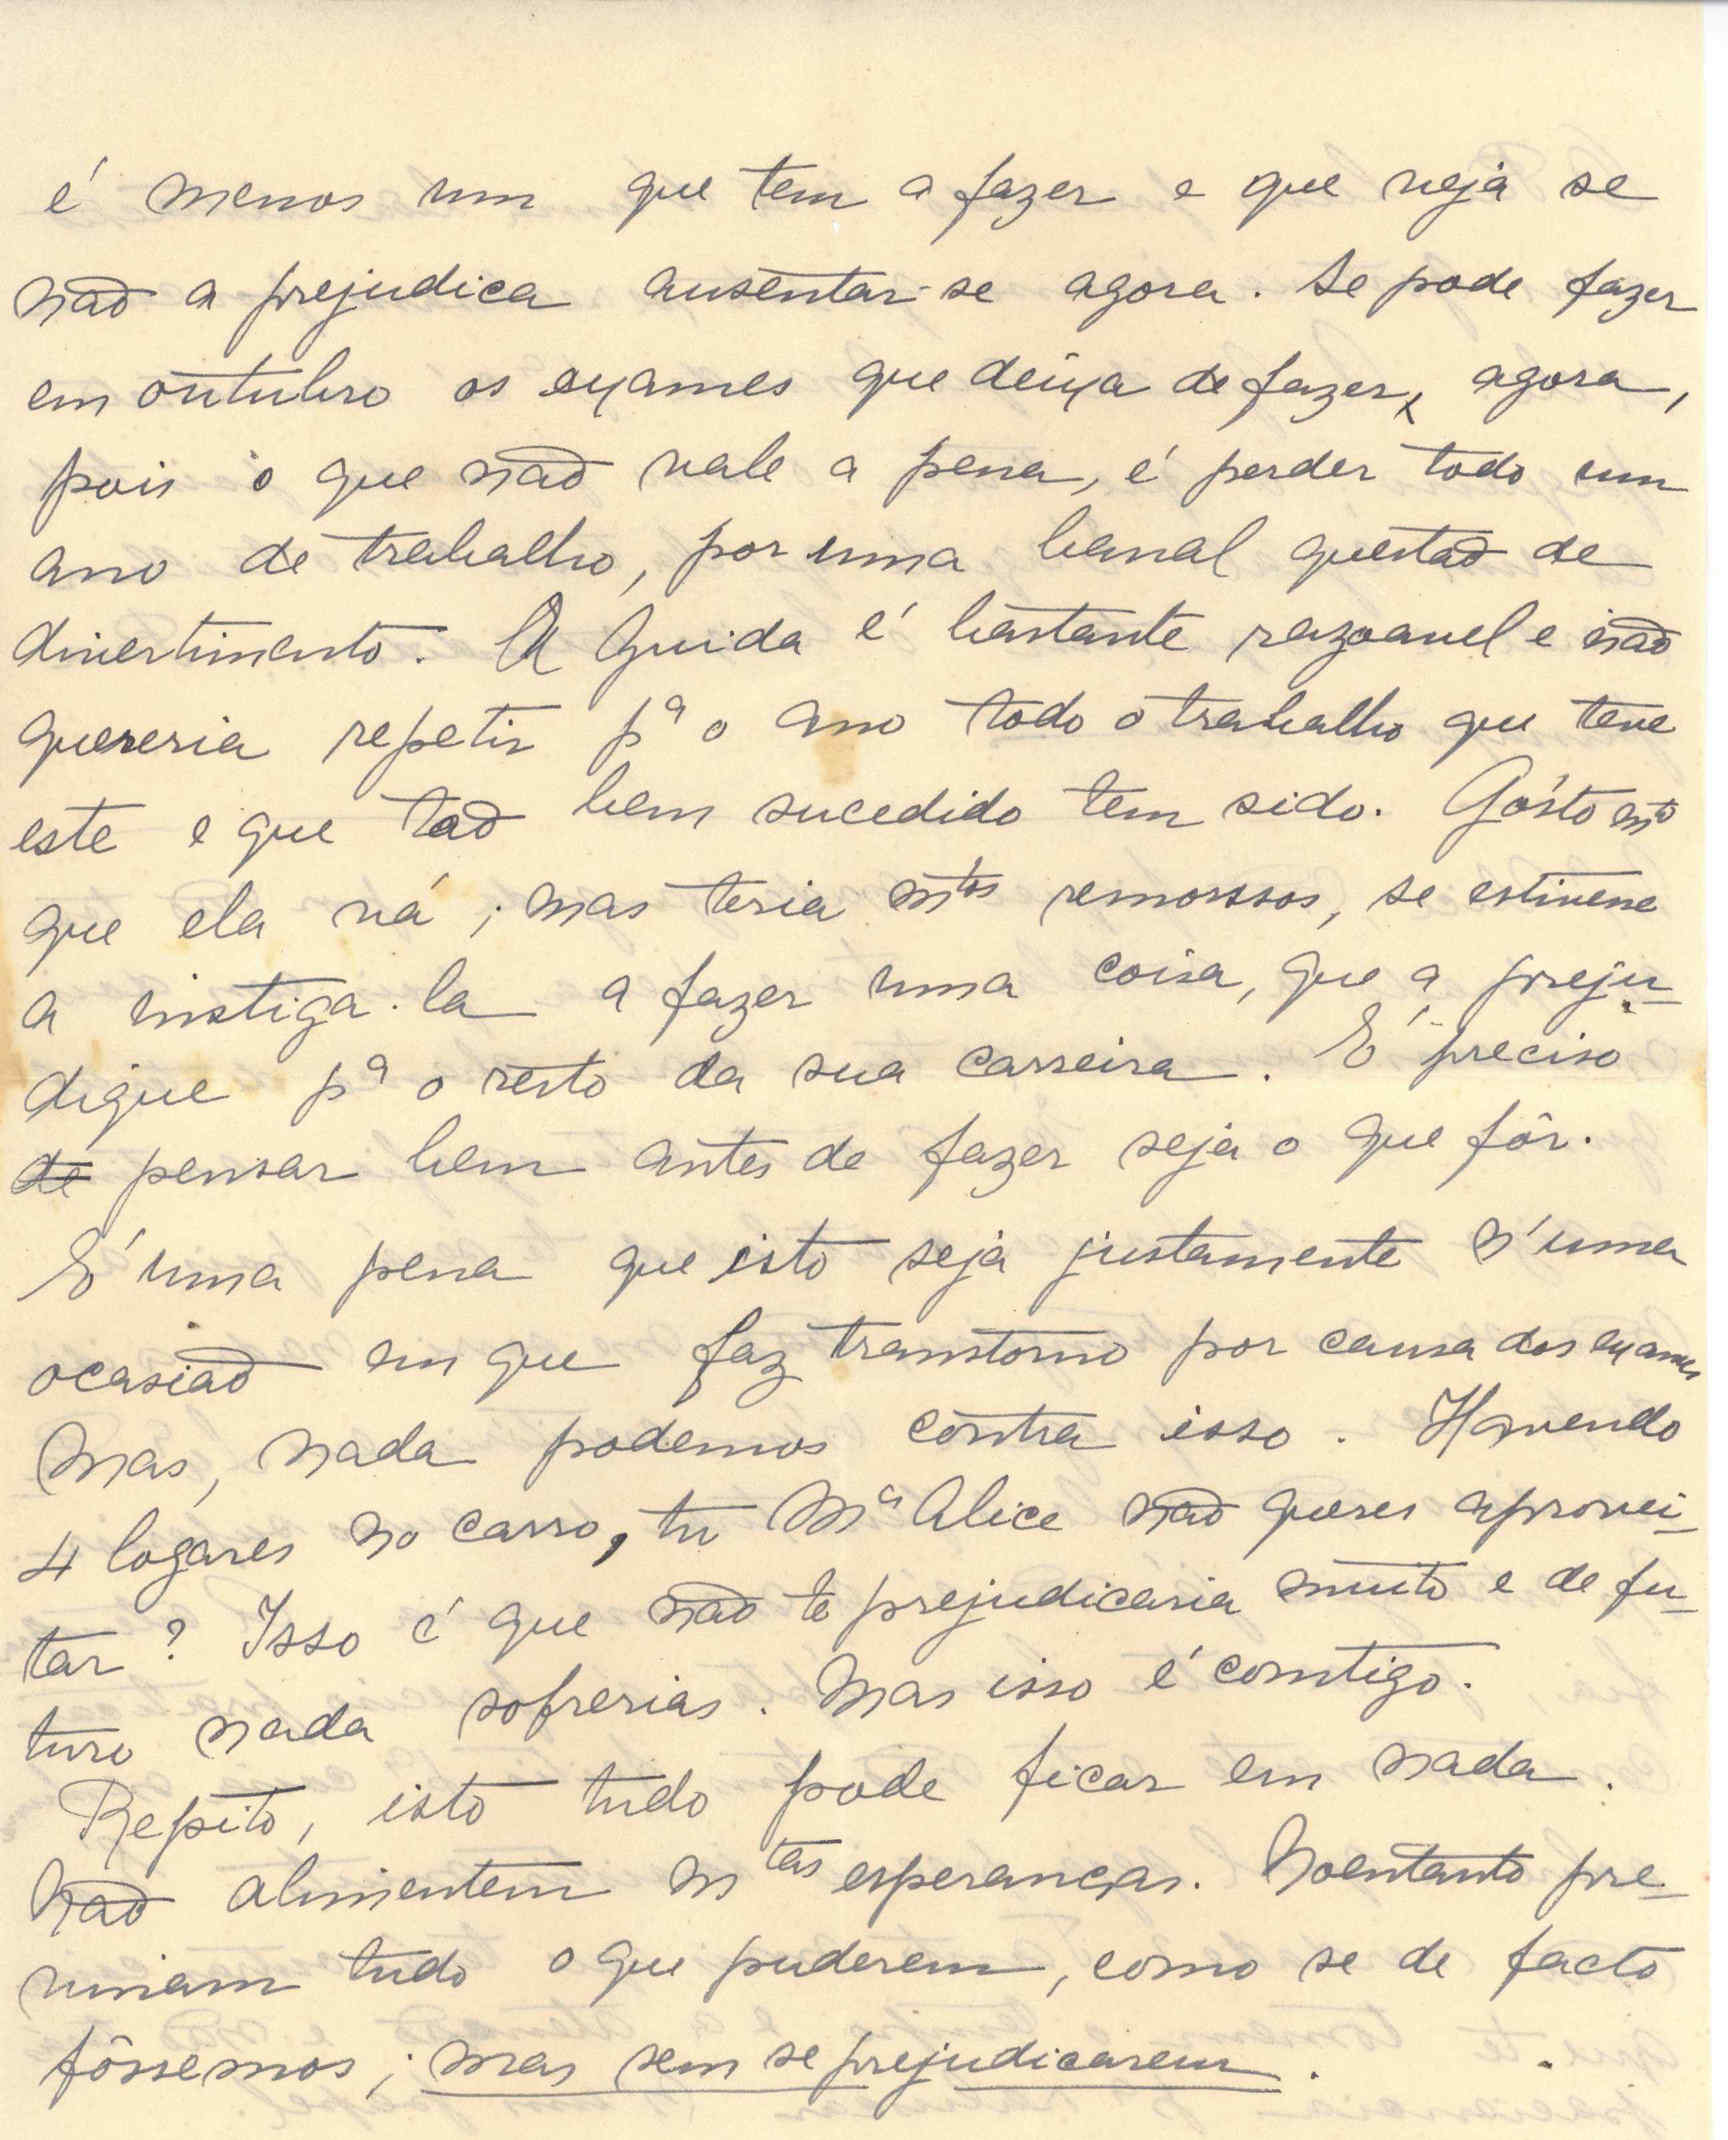 é menos um que tem a fazer e que veja se
não a prejudica ausentar-se agora. Se pode fazer
em outubro os exames que deixa de fazer, agora,
pois o que não vale a pena, é perder todo um
ano de trabalho, por uma banal questão de
divertimento. A Guida é bastante razoavel e não
quereria repetir pª o ano todo o trabalho que teve
este e que tão bem sucedido tem sido. Gósto mto
que ela vá; mas teria mtos remorssos, se estivesse
a instiga-la a fazer uma coisa, que a preju-
dique pª o resto da sua carreira. É preciso
de pensar bem antes de fazer seja o que fôr.
É uma pena que isto seja justamente n'uma
ocasião em que faz transtorno por causa dos exames
Mas, nada podemos contra isso. Havendo
4 logares no carro, tu Mª Alice não queres aprovei-
tar? Isso é que não te prejudicaria muito e de fu-
turo nada sofrerias. Mas isso é comtigo.
Repito, isto tudo pode ficar em nada.
Não alimentem mtas esperanças. Noentanto pre-
vinam tudo o que puderem, como se de facto
fôssemos; mas sem se prejudicarem.